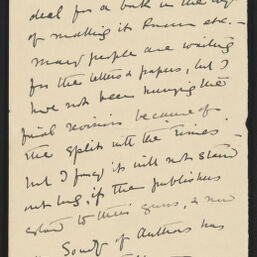 deal for a book in the way
of making it known etc. –
Many people are writing
for the letters & papers, but I
have not been hurrying the
final revision because of
the split with the Times –
but I fancy it will not stand
out long, if the publishers
stand to their guns, & now
Society of Authors has